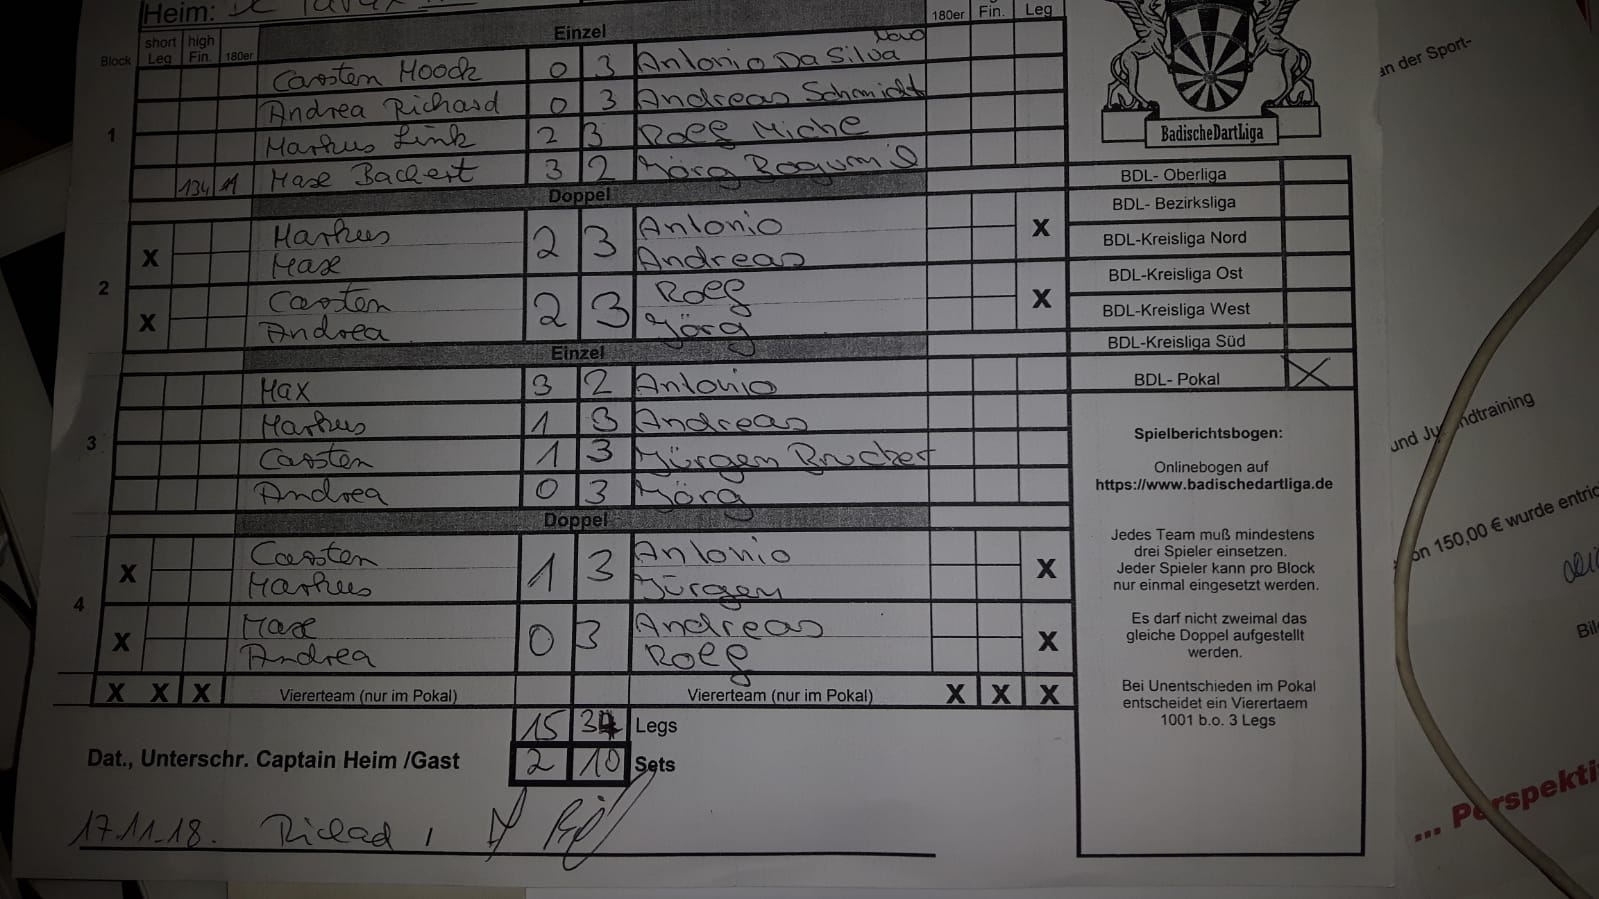 Heim:
180er Fin. Leg
short Leg high Fin. 180er Einzel
Block
Carsten Moock 0 3 Antonio Da Silva
Andrea Richard 0 3 Andreas Schmidt
1
Markus Link 2 3 Rolf Miche
134 1 Max Bachert 3 2 Jörg Bogumil
Doppel
Markus 2 3 Antonio
X Max Andreas X
2
Carsten 2 3 Rolf
X Andrea Jörg X
Einzel
Max 3 2 Antonio
Markus 1 3 Andreas
3
Carsten 1 3 Jürgen Brucker
Andrea 0 3 Jörg
Doppel
Carsten 1 3 Antonio
X Markus Jürgen X
4
Max 0 3 Andreas
X Andrea Rolf X
X X X Viererteam (nur im Pokal) Viererteam (nur im Pokal) X X X
15 34 Legs
Dat., Unterschr. Captain Heim /Gast 2 10 Sets
17.11.18. Richard /
BadischeDartLiga
BDL- Oberliga
BDL- Bezirksliga
BDL-Kreisliga Nord
BDL-Kreisliga Ost
BDL-Kreisliga West
BDL-Kreisliga Süd
BDL- Pokal X
Spielberichtsbogen:
Onlinebogen auf
https://www.badischedartliga.de
Jedes Team muß mindestens
drei Spieler einsetzen.
Jeder Spieler kann pro Block
nur einmal eingesetzt werden.
Es darf nicht zweimal das
gleiche Doppel aufgestellt
werden.
Bei Unentschieden im Pokal
entscheidet ein Vierertaem
1001 b.o. 3 Legs
an der Sport-
und Jugendtraining
on 150,00 € wurde entric
... Perspekti